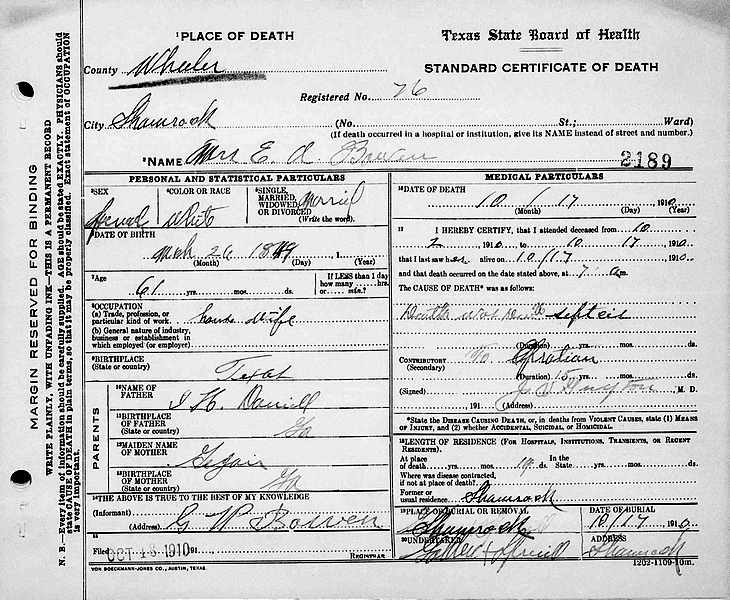 MARGIN RESERVED FOR BINDING
WRITE PLAINLY, WITH UNFADING INK—THIS IS A PERMANENT RECORD
N. B.—Every item of information should be carefully supplied. AGE should be stated EXACTLY. PHYSICIANS should
state CAUSE OF DEATH in plain terms, so that it may be properly classified. Exact statement of OCCUPATION
is very important.
1 PLACE OF DEATH
Texas State Board of Health
County Wheeler
STANDARD CERTIFICATE OF DEATH
Registered No. 76
City Shamrock (No. St.; Ward)
(If death occurred in a hospital or institution, give its NAME instead of street and number.)
2 NAME Mrs E. A. Bowen
2189
PERSONAL AND STATISTICAL PARTICULARS
3 SEX
4 COLOR OR RACE White
5 SINGLE, MARRIED, WIDOWED, OR DIVORCED (Write the word).
6 DATE OF BIRTH
Mch 26 1849
(Month) (Day) (Year)
7 Age
61 yrs. mos. ds.
If LESS than 1 day
how many hrs.
or min?
8 OCCUPATION
(a) Trade, profession, or
particular kind of work house wife
(b) General nature of industry,
business or establishment in
which employed (or employer)
9 BIRTHPLACE
(State or country) Texas
PARENTS
10 NAME OF
FATHER
11 BIRTHPLACE
OF FATHER
(State or country) Ga
12 MAIDEN NAME
OF MOTHER
13 BIRTHPLACE
OF MOTHER
(State or country) Ga
14 THE ABOVE IS TRUE TO THE BEST OF MY KNOWLEDGE
(Informant) G W Bowen
(Address)
15
Filed OCT 1910 191
REGISTRAR
VON BOECKMANN-JONES CO., AUSTIN, TEXAS.
MEDICAL PARTICULARS
16 DATE OF DEATH
10 / 17 1910
(Month) (Day) (Year)
17 I HEREBY CERTIFY, that I attended deceased from 10
2 1910 to 10 17 1910
that I last saw her alive on 10/17 1910
and that death occurred on the date stated above, at 7 am.
The CAUSE OF DEATH* was as follows:
Death was due to
(Duration) yrs. mos. ds.
CONTRIBUTORY
(Secondary)
(Duration) 15 yrs. mos. ds.
(Signed) M. D.
191 (Address)
*State the DISEASE CAUSING DEATH, or, in deaths from VIOLENT CAUSES, state (1) MEANS
OF INJURY, and (2) whether ACCIDENTAL, SUICIDAL or HOMICIDAL.
18 LENGTH OF RESIDENCE (FOR HOSPITALS, INSTITUTIONS, TRANSIENTS, OR RECENT
RESIDENTS).
At place of death yrs. mos. ds. In the State yrs. mos. ds.
Where was disease contracted,
if not at place of death?
Former or
usual residence Shamrock
19 PLACE OF BURIAL OR REMOVAL
Shamrock
DATE OF BURIAL
10/17 1910
20 UNDERTAKER
ADDRESS
Shamrock
1202-1109-10m.